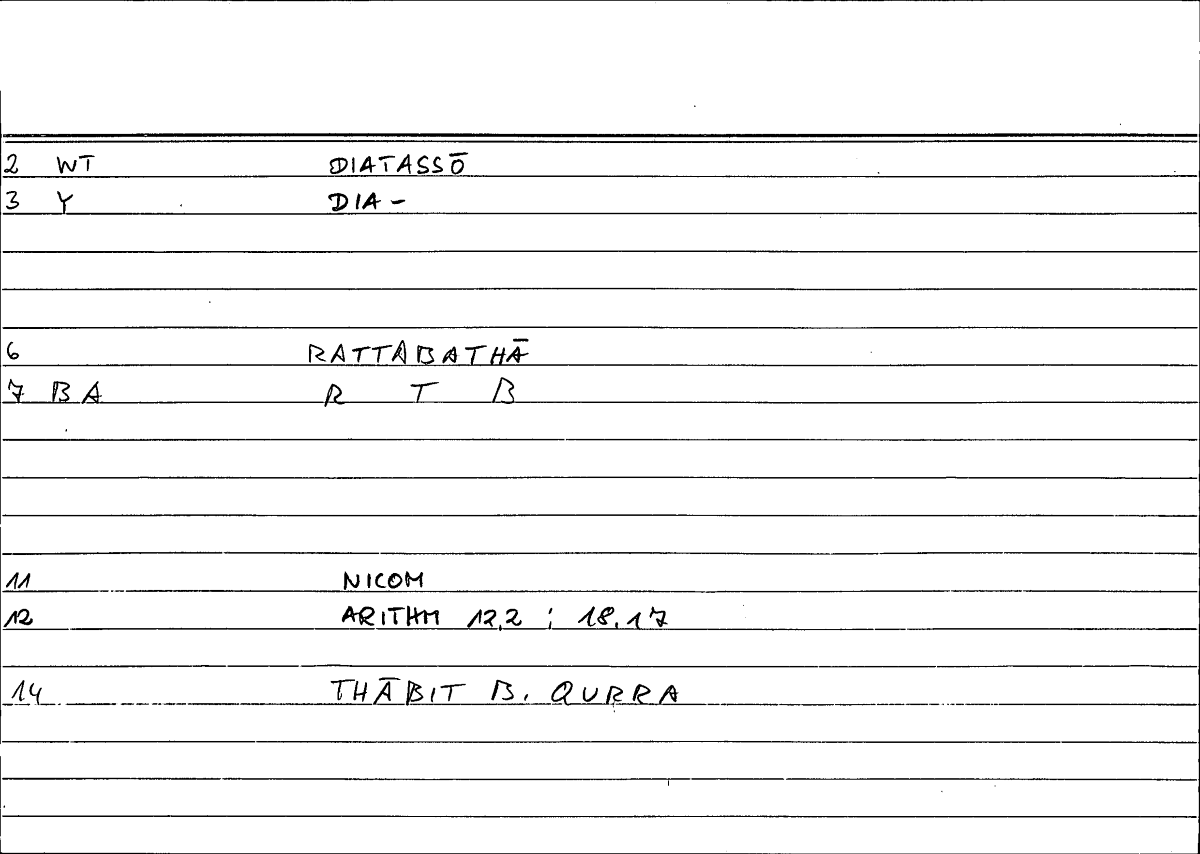 2 WT DIATASSŌ
3 Y DIA-
6 RATTABATHĀ
7 BA R T B
11 NICOM
12 ARITHM 12,2 ; 18,17
14 THĀBIT B. QURRA